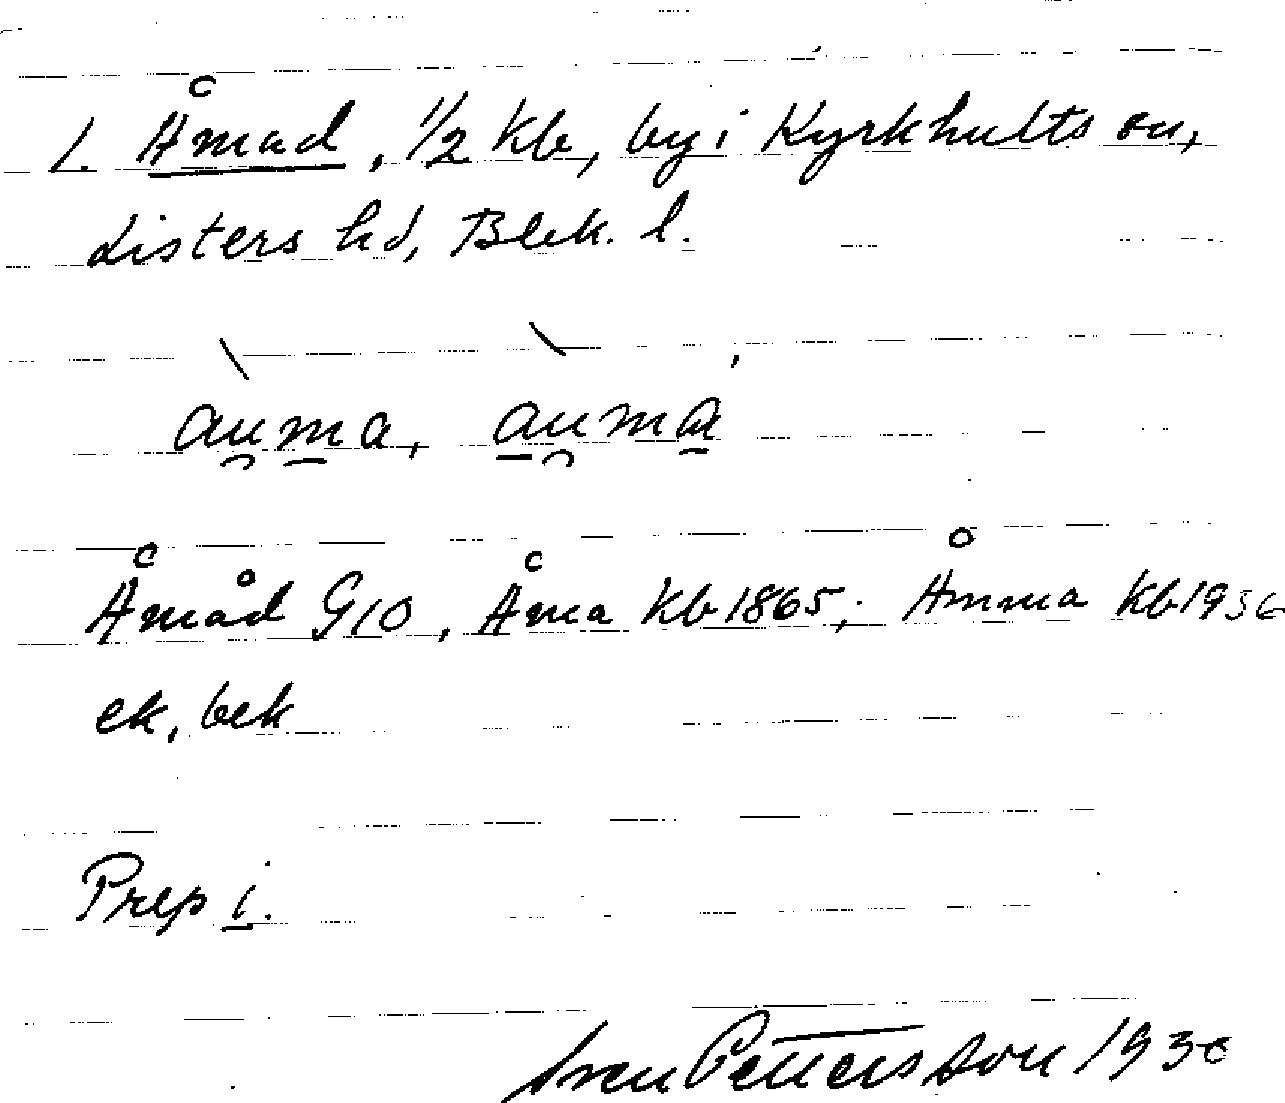 1. Åmad, 1/2 kb, by i Kyrkhults sn,
Listers hd, Blek. l.
auma, auma
Åmåd G10, Åma kb 1865; Åmma kb 1936
ek, bek
Prep i.
Sven Pettersson 1936